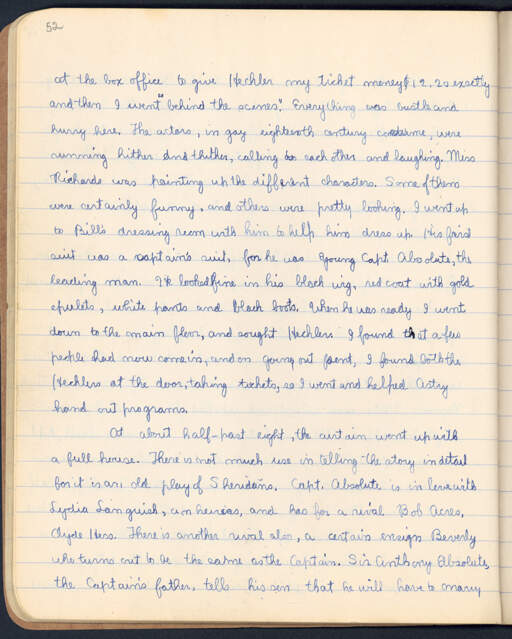 52
at the box office to give Hechler my ticket money $12.20 exactly
and then I went "behind the scenes". Everything was bustle and
hurry here. The actors, in gay eighteenth century costume, were
running hither and thither, calling to each other and laughing. Miss
Richards was painting up the different characters. Some of them
were certainly funny, and others were pretty looking. I went up
to Bill's dressing room with him to help him dress up. His first
suit was a captain's suit, for he was young Capt. Absolute, the
leading man. He looked fine in his black wig, red coat with gold
epulets, white pants and black boots. When he was ready I went
down to the main floor, and sought Hechler. I found that a few
people had now come in, and on going out front, I found both the
Hechlers at the door, taking tickets, so I went and helped Astry
hand out programs.
At about half-past eight, the curtain went up with
a full house. There is not much use in telling the story in detail
for it is an old play of Sheridan's. Capt. Absolute is in love with
Lydia Languish, an heiress, and has for a rival Bob Acres,
Clyde Hess. There is another rival also, a certain ensign Beverly
who turns out to be the same as the Captain. Sir Anthony Absolute,
the Captain's father, tells his son that he will have to marry